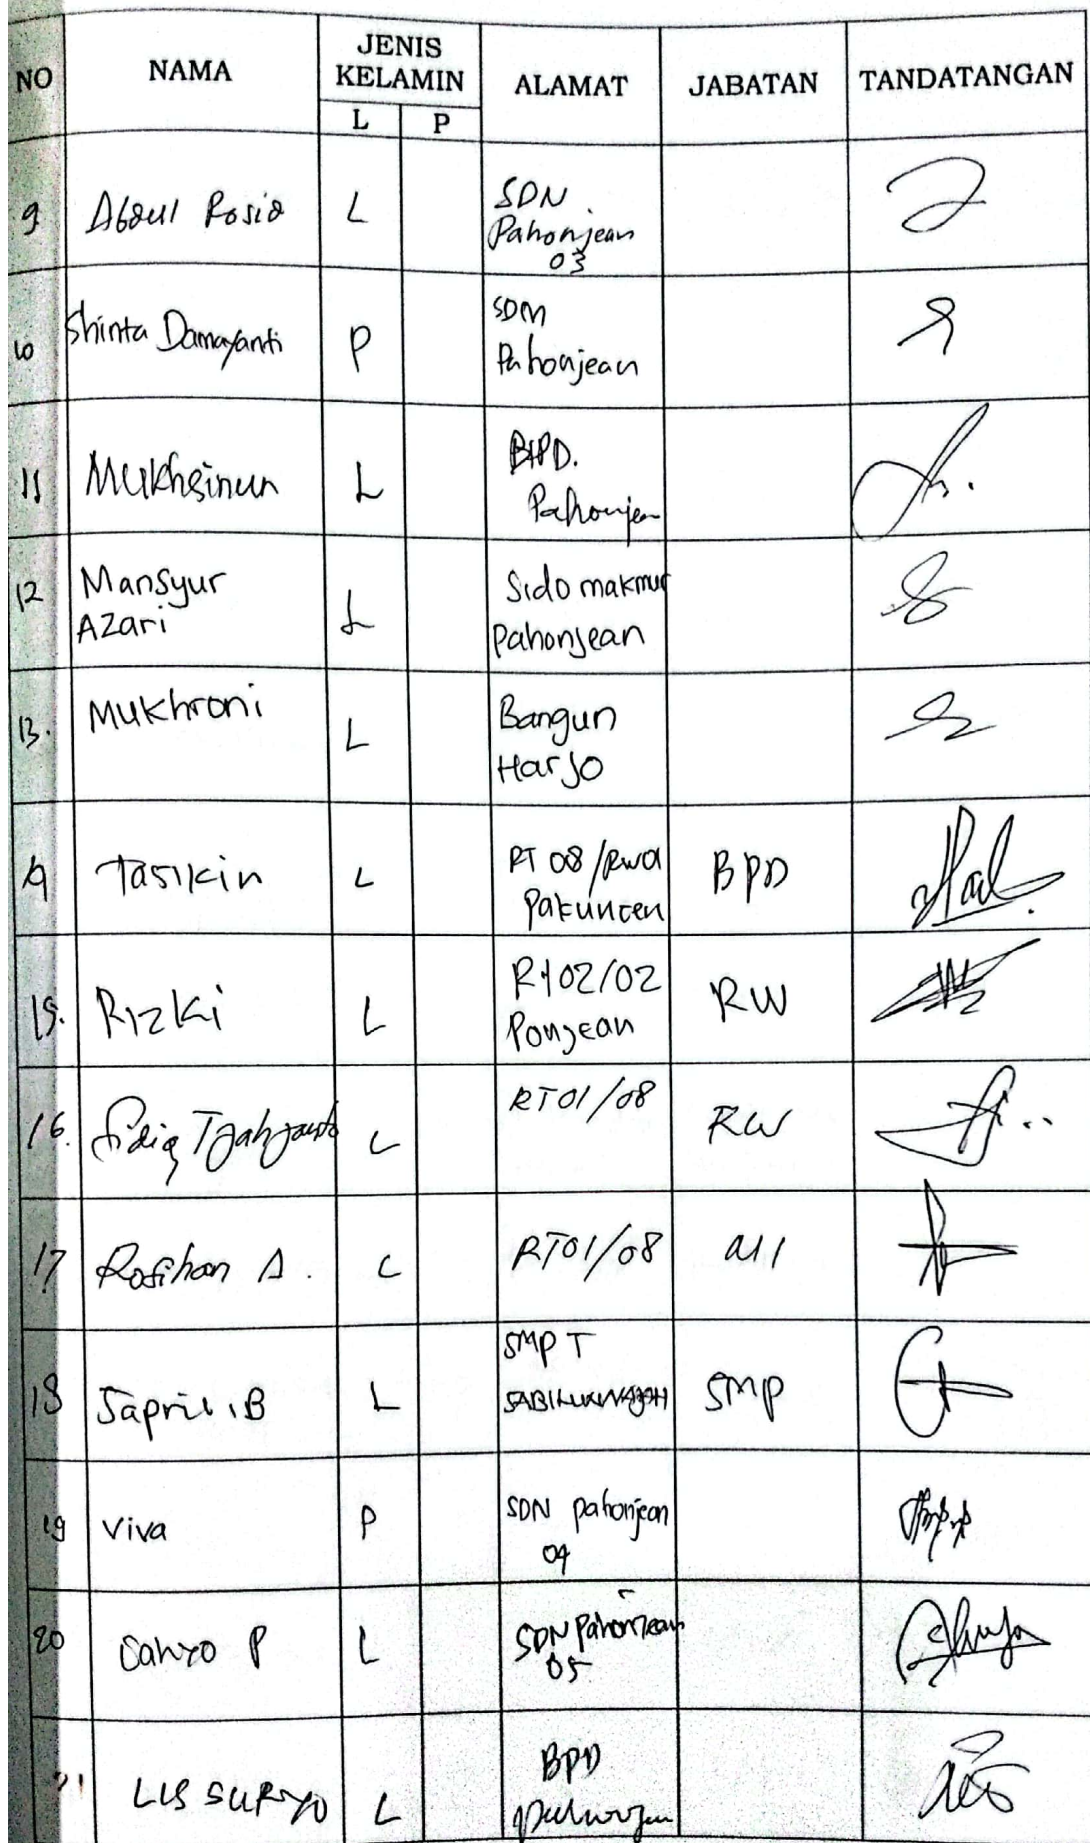 NO NAMA JENIS KELAMIN ALAMAT JABATAN TANDATANGAN
L P
9 Abdul Rosid L SDN Pahonjean 03
10 Shinta Damayanti P SDN Pahonjean
11 Mukhsinun L BPD. Pahonjean
12 Mansyur Azari L Sido makmur Pahonjean
13. Mukhroni L Bangun Harjo
14 Tasikin L RT 08/RW01 Pakuncen BPD
15. Rizki L Rt 02/02 Ponjean RW
16. Sidiq Tjahjanto L RT01/08 RW
17 Rosihan A. L RT01/08
18 Sapril.B L SMP T SMP
19 Viva P SDN Pahonjean 04
20 Sahyo P L SDN Pahonjean 05
21 LIS SURYO L BPD Pahonjean